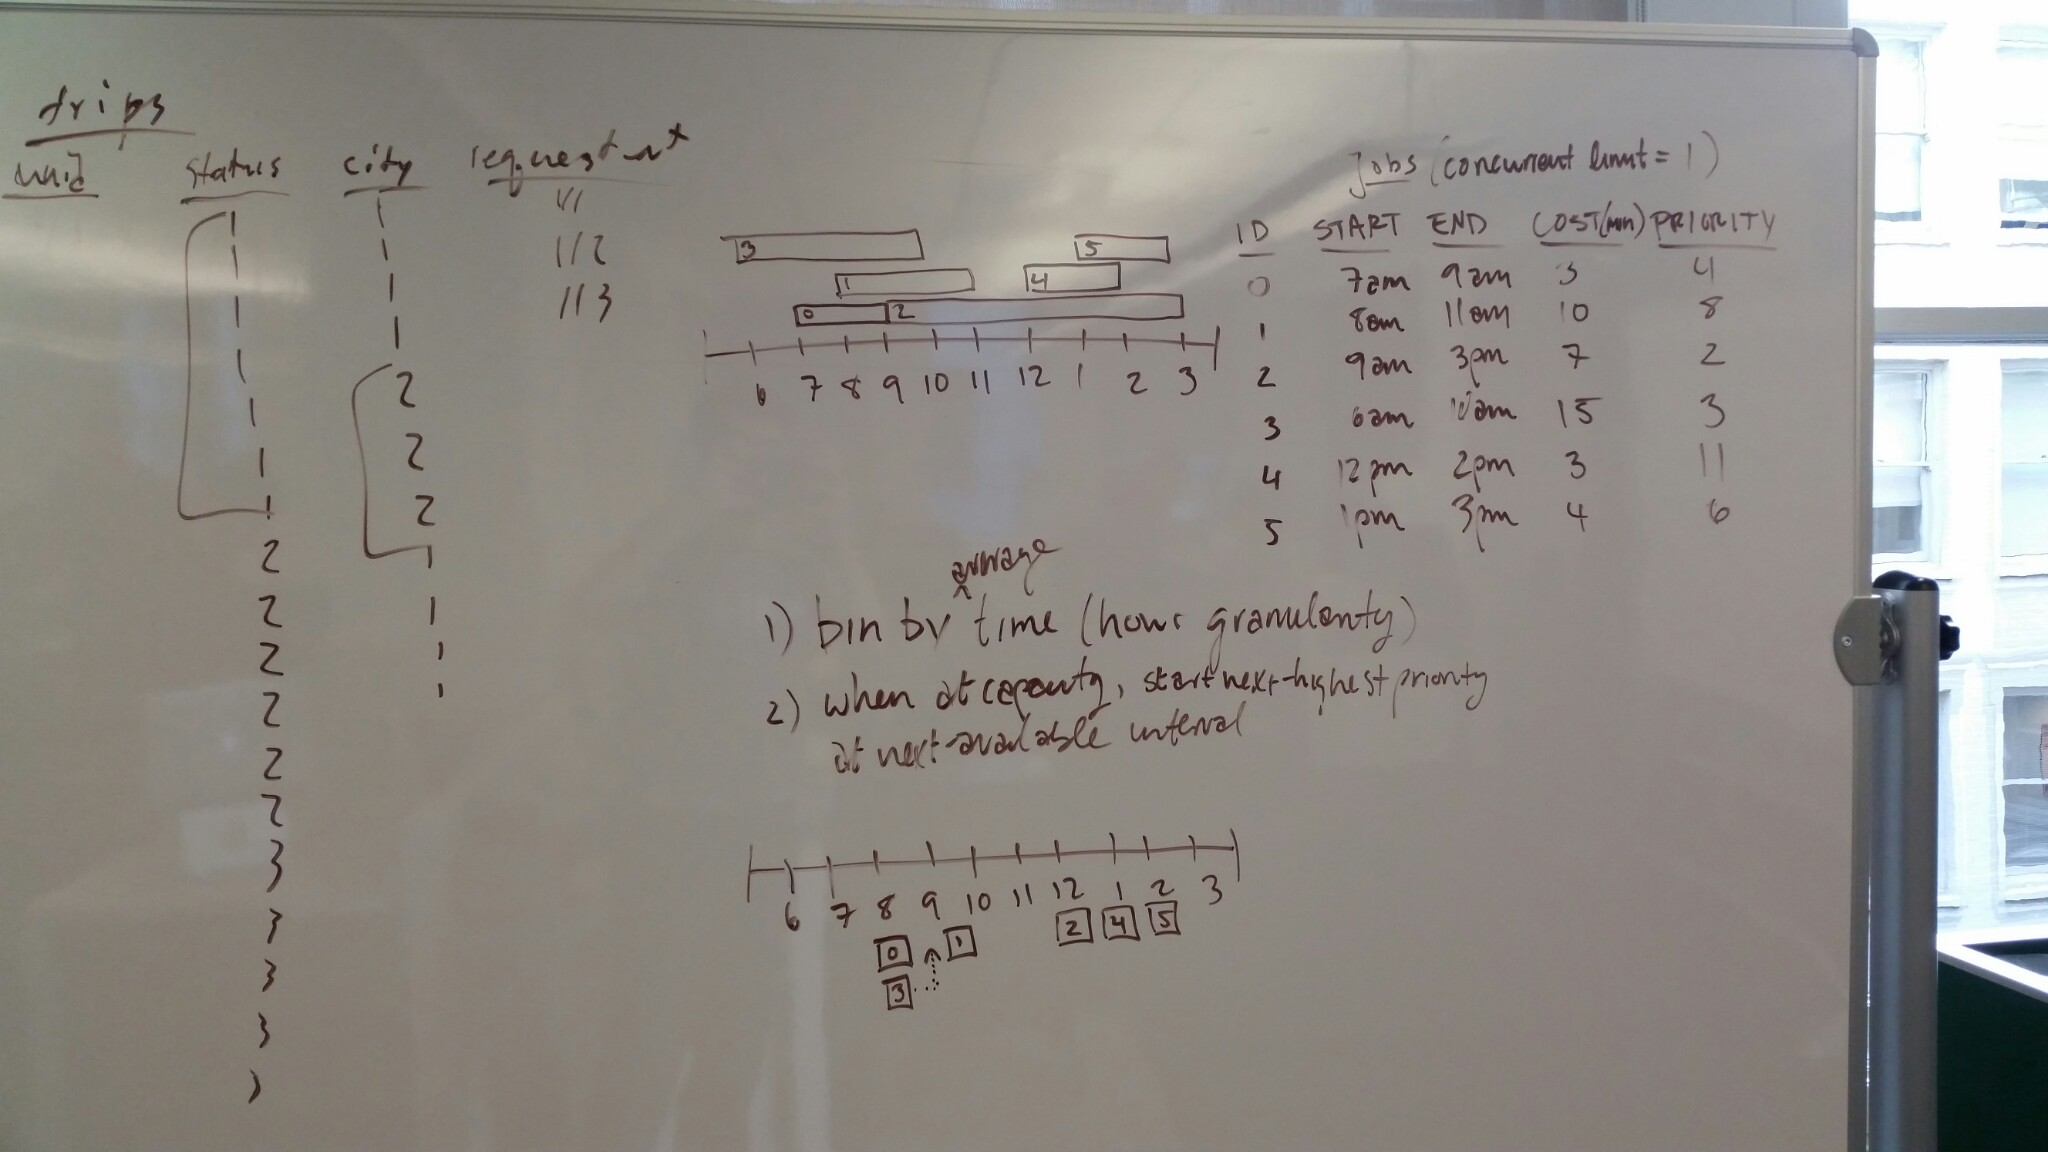 trips
uuid status city request_at
1 1 1/1
1 1 1/2
1 1 1/3
1 1
1 2
1 2
1 2
2 1
2 1
2 1
2 1
2
2
3
3
3
3
3
Jobs (concurrent limit = 1)
ID START END COST(min) PRIORITY
0 7am 9am 3 4
1 8am 11am 10 8
2 9am 3pm 7 2
3 6am 10am 15 3
4 12pm 2pm 3 11
5 1pm 3pm 4 6
3 5
1 4
0 2
6 7 8 9 10 11 12 1 2 3
1) bin by average time (hour granularity)
2) when at capacity, start next-highest priority
at next-available interval
6 7 8 9 10 11 12 1 2 3
0 1 2 4 5
3